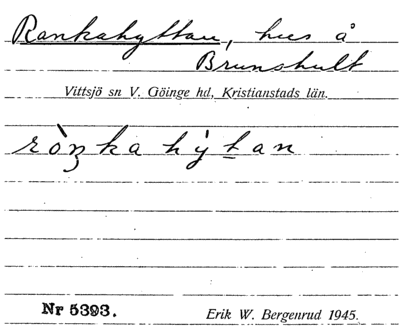 Rankahyttan, hus å
Brunshult
Vittsjö sn V. Göinge hd, Kristianstads län.
ròŋkahỳtan
Nr 5393.
Erik W. Bergenrud 1945.